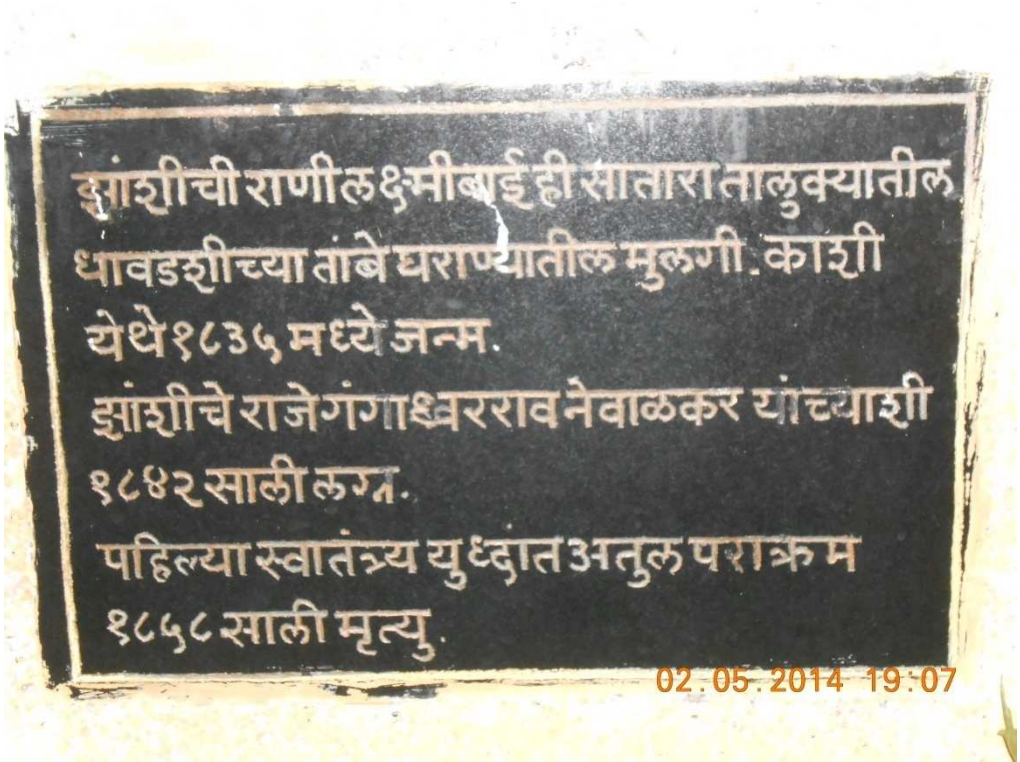 झांशीची राणी लक्ष्मीबाई ही सातारा तालुक्यातील
धावडशीच्या तांबे घराण्यातील मुलगी. काशी
येथे १८३५ मध्ये जन्म.
झांशीचे राजे गंगाध्वरराव नेवाळकर यांच्याशी
१८४२ साली लग्न.
पहिल्या स्वातंत्र्य युध्दांत अतुल पराक्रम
१८५८ साली मृत्यु.
02.05.2014 19:07